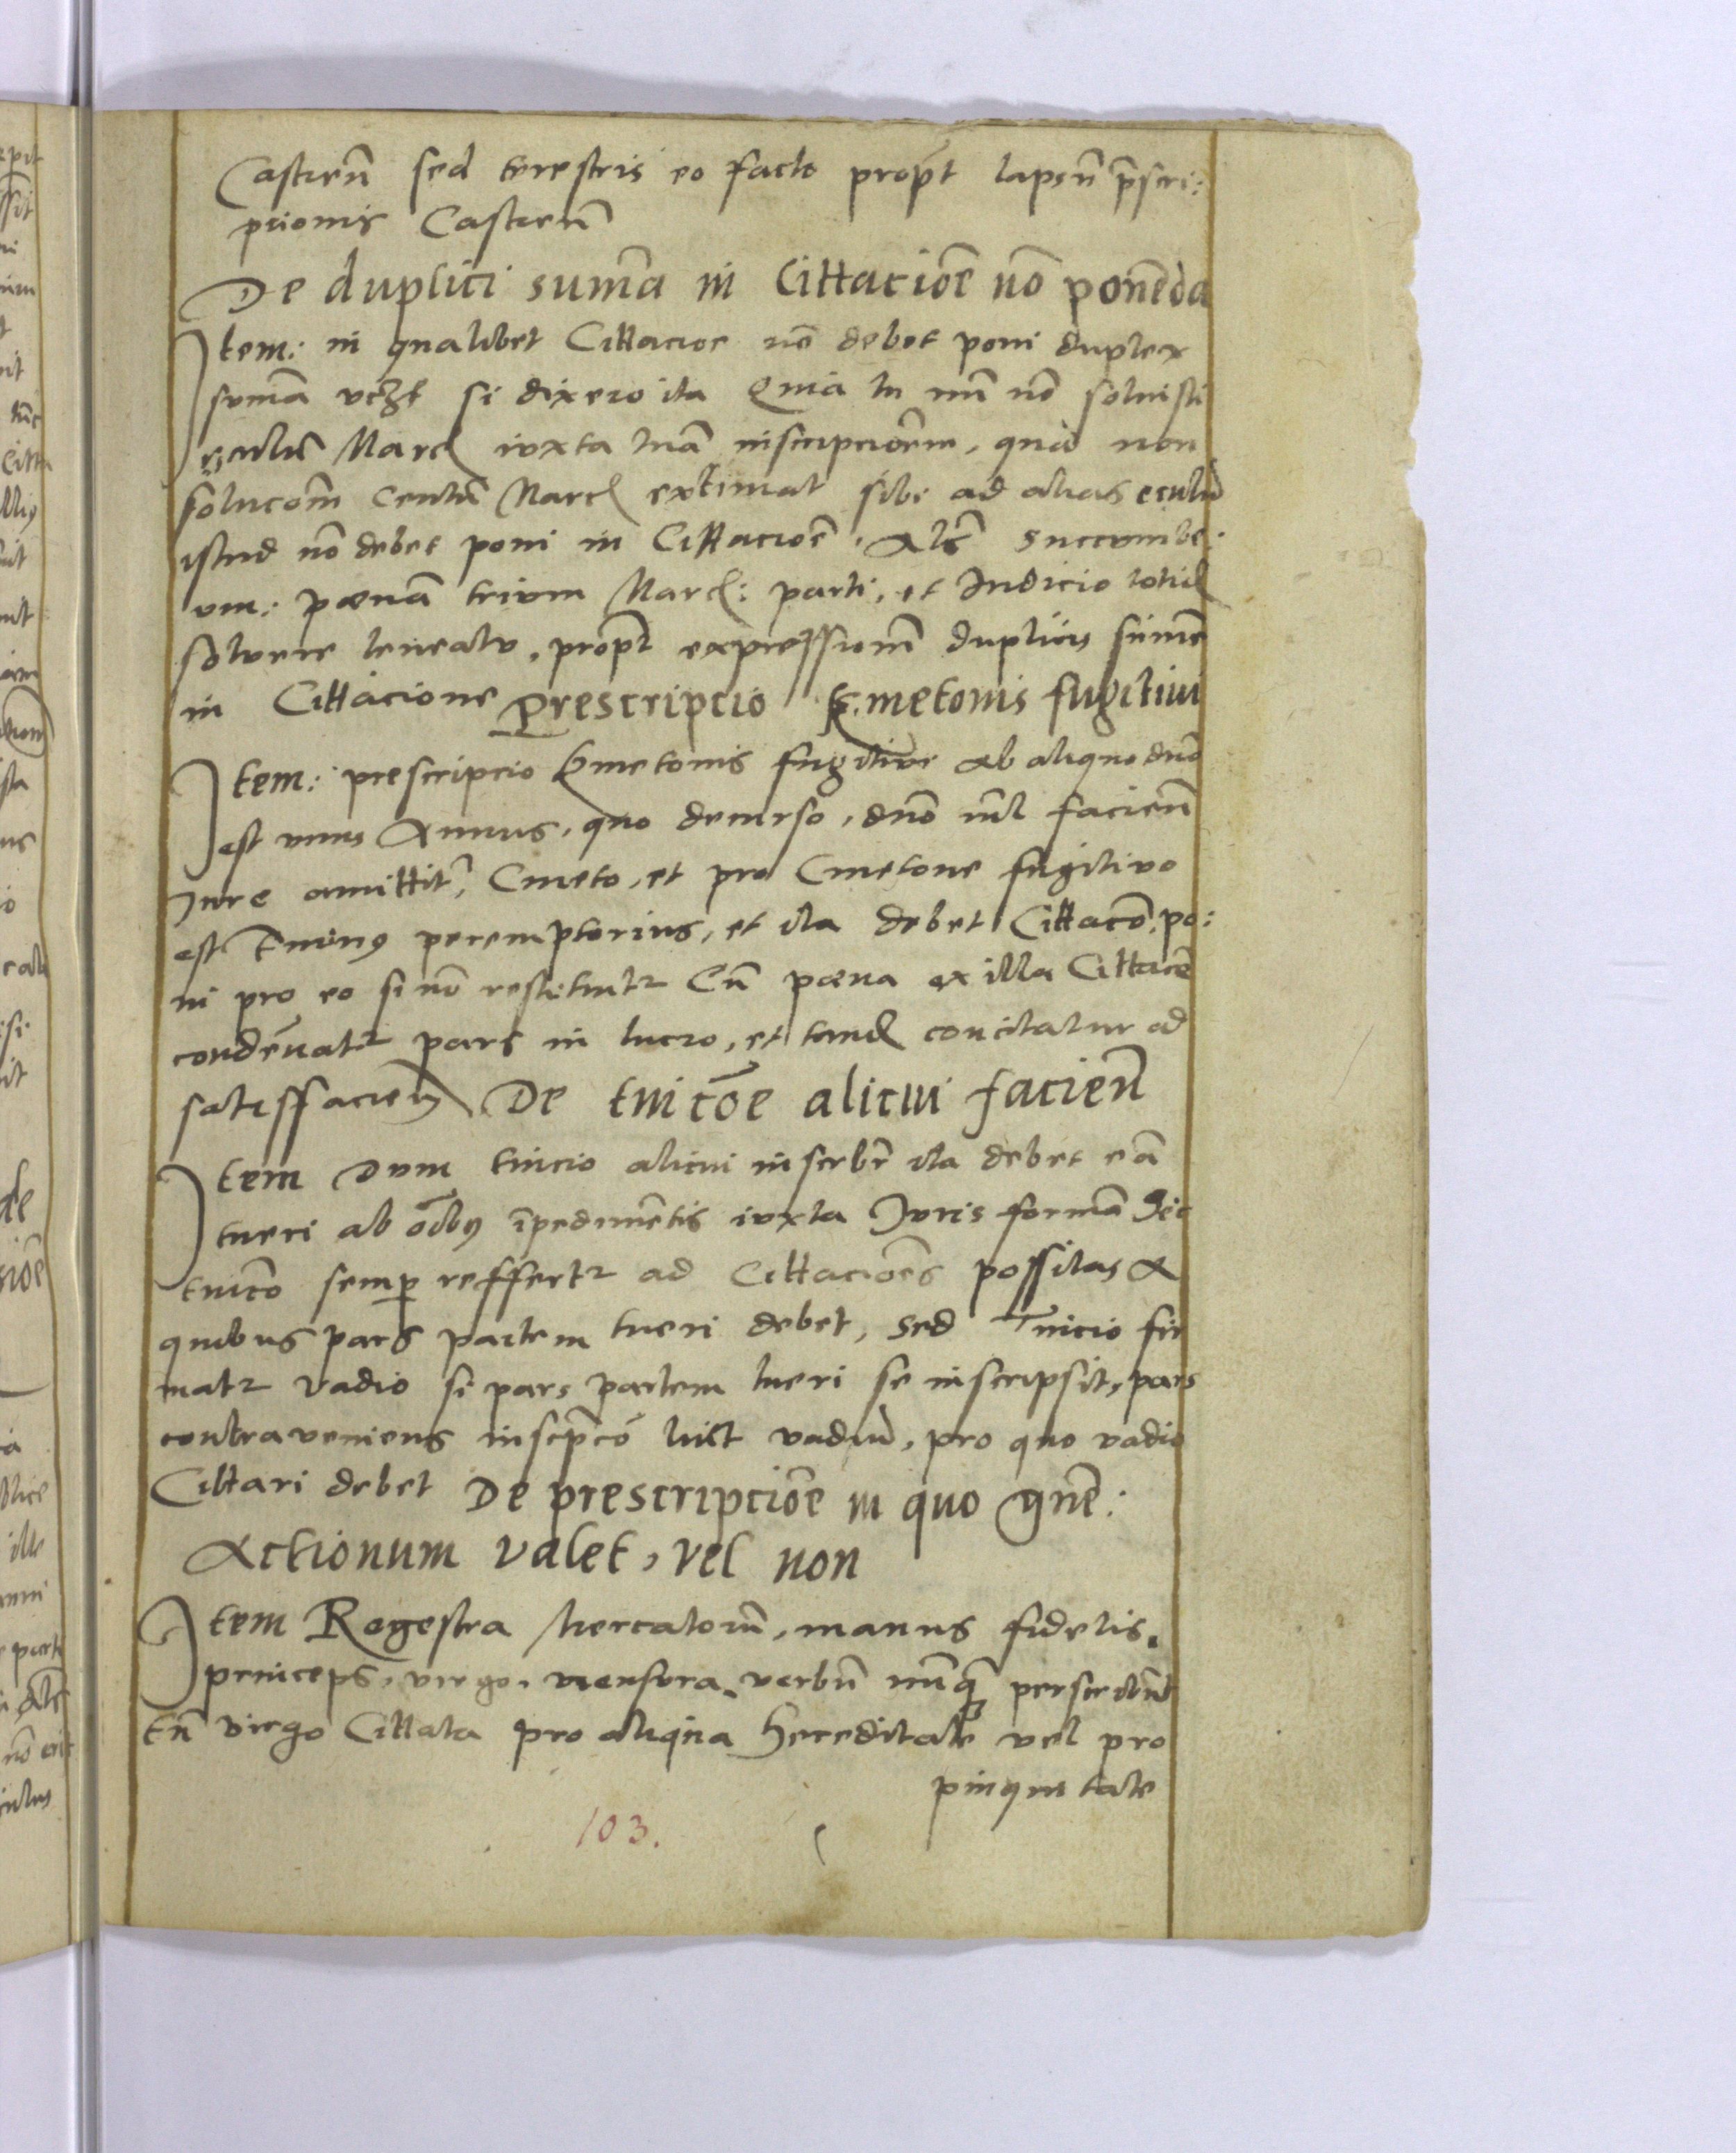 Castreñ sed terestris eo facto propt̄ lapsū p̄scri:
ptionis Castreñ
De duplici sum̄a in Cittacioē nō ponēda
Item: in qualibet Cittacioe nō debet poni duplex
sum̄a vcȝt si dixero ita Quia tu mī nō soluisti
centū Marcͩ iuxta tuā inscripcioēm, quā non
solucoēm centū Marcͩ extimat sibi ad alias
istud nō debet poni in Cittacioē. Als̄ succumbe:
um: pœnā trium Marcͩ: parti, et Iudicio totid
soluere teneatr, propt̄ expressionē duplicis sūme
in Cittacione Prescripcio Kmetonis fugitiui
Item: prescripcio Kmetonis fugitiui ab aliquo dn̄o
est vnus Annus, quo decurso, dn̄o nil̄ facieñ
Iure amittitr̄, Cmeto, et pro Cmetone fugitiuo
est Tminꝰ peremptorius, et ita debet Cittacō po:
ni pro eo si nō restituitr Cū pœna ex illa Cittacōe
condēnatr pars in lucro, et tandͤ concitatur ad
satisffacieñ De tuicōe alicui facieñ
Item Dum tuicio alicui inscrbr̄ ita debet eā
tueri ab oībꝰ īpedimētis iuxta Iuris formā Sic
tuicō semꝑ reffertr ad Cittacioēs possitas A
quibus pars partem tueri debet, sed Tuicio fir
matr vadio si pars partem tueri se inscripsit, pars
contraueniens inscp̄cō luit vadiū, pro quo vadio
Cittari debet De prescripcioē in quo gn̄e:
Actionum valet, vel non
Item Regestra Mercatorū, manus fidelis.
princeps, virgo, mensura, verbū nūqꝫ perscribūt
tn̄ virgo Cittata pro aliqua hereditate vel pro
pinquitate
103.